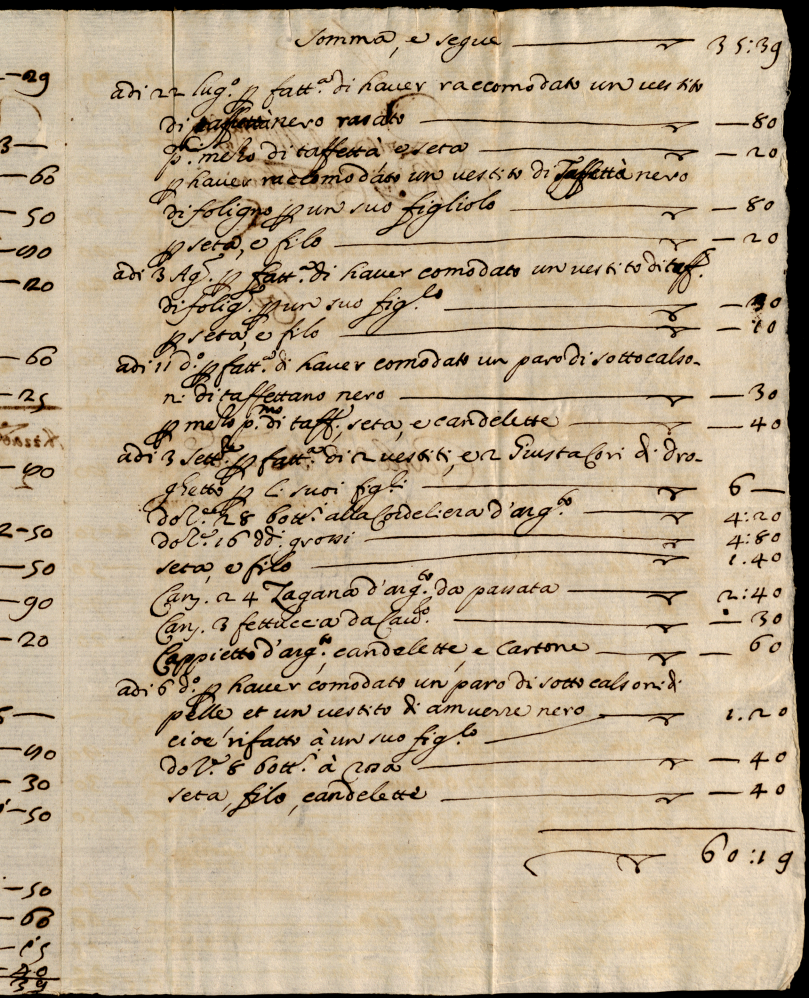 Somma, e segue — 35:39
adi 22 lug.o p fatt.a di haver raccomodato un vestito
di taffettà nero rasato — 80
p.i mezzo di taffettà e seta — 20
p haver raccomodato un vestito di Taffettà nero
di foligno p un suo figliolo — 80
p seta, e filo — 20
adi 3 Ag.o p fatt.a di haver comodato un vestito di taff.
di folig.o p un suo fig.lo — 30
p seta, e filo — 10
adi 11 d.o p fatt.a di haver comodato un paro di sottocalso-
ni di taffettano nero — 30
p mezzo p.mo di taff., seta, e candelette — 40
adi 3 Sett.e p fatt.a di 2 vestiti, e 2 Giustacori di dro-
ghetto p li suoi figli — 6 —
do l.e 28 bott.i alla Cordeliera d'arg.to — 4:20
do l.e 16 dd.i grossi — 4:80
seta, e filo — 1.40
Can. 24 Zagana d'arg.to da passata — 2:40
Can. 3 fettuccia da — 30
Cappietto d'arg.to, candelette e Cartone — 60
adi 6 d.o p haver comodato un paro di sotto calsoni di
pelle et un vestito di amuerre nero — 1.20
cioè rifatto à un suo fig.lo
do l.e 8 bott.i à — 40
seta, filo, candelette — 40
60:19
29
3 —
60
50
90
20
60
25
90
2-50
50
90
20
90
30
50
50
60
15